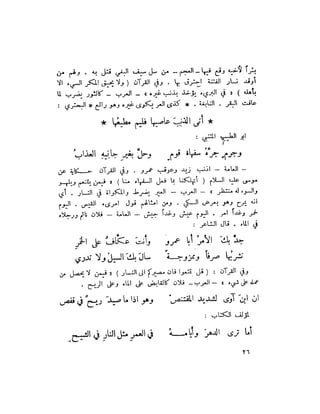 بئراً لأخيه وقع فيها ـ العجم ـ من سل سيف البغي قتل به . ولهم من
أوقد نـار الفتنة احترق بها . وفي القرآن ( ولا يحيق المكر السيء الا
بأهله ) « في البريء يؤخذ بذنب غيره » ـ العرب ـ كالثور يضرب لما
عافت البقر . النابغة . * كذى العر يكوى غيره وهو راتع * البحتري :
* أنى الذنب عاصيها فليم مطيعها *
ابو الطيب المتنبي :
وجرم جره سفهاء قوم وحل بغير جانيه العذاب
ـ العامة ـ اذنب زيد وعوقب عمرو . وفي القرآن حكـاية عن
موسى عليه السلام ( أتهلكنا بما فعل السفهاء منا ) « فيمن يتنعم ويلهو
والسوء له منتظر » ـ العرب ـ العير يضرط والمكواة في النار . أي
انه يمرح وهو بعرض السكي . ومن امثالهم قول امرىء القيس . اليوم
خمر وغداً امر . اليوم عيش وغداً جيش ـ العامة ـ فلان نائم ورجلاه
في الماء . قال الشاعر :
جد بك الأمر أبا عمرو وأنت عكاف على الخمر
تشربها صرفاً وممزوجـة سال بك السيل ولا تدري
وفي القرآن : ( قل تمتعوا فان مصيركم الى النـار ) « فيمن لا يحصل من
عمله على شيء » ـ العرب ـ فلان كالقابض على الماء وعلى الريـح .
ان ابن آوى لشديد المقتنص وهو اذا ما صيد ريـح في قفص
لمؤلف الكتاب :
أما ترى الدهر وأيامـه في العمر مثل النار في الشيـح
٢٦